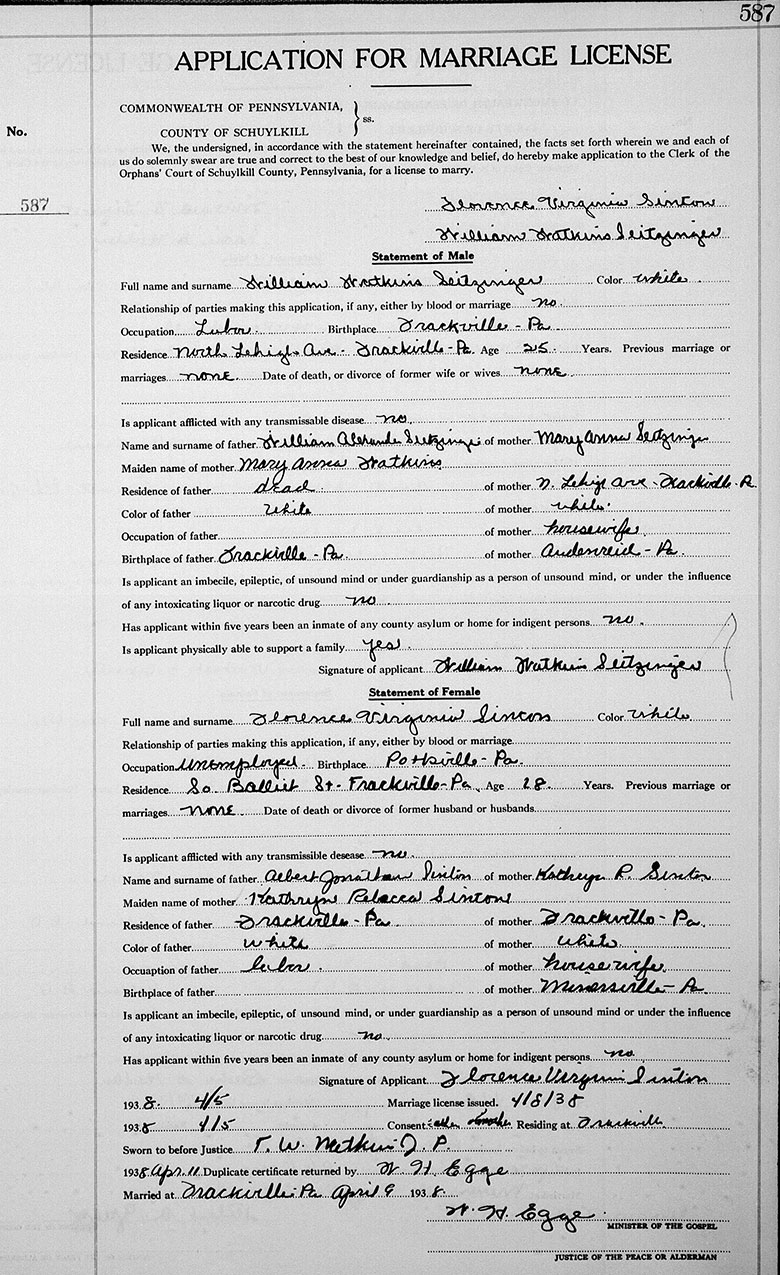 587
APPLICATION FOR MARRIAGE LICENSE
COMMONWEALTH OF PENNSYLVANIA,
ss.
No.
COUNTY OF SCHUYLKILL
We, the undersigned, in accordance with the statement hereinafter contained, the facts set forth wherein we and each of
us do solemnly swear are true and correct to the best of our knowledge and belief, do hereby make application to the Clerk of the
Orphans' Court of Schuylkill County, Pennsylvania, for a license to marry.
587
Florence Virginia Sinton
William Watkins Seitzinger
Statement of Male
Full name and surname William Watkins Seitzinger Color White
Relationship of parties making this application, if any, either by blood or marriage no
Occupation Labor Birthplace Frackville - Pa.
Residence North Lehigh Ave - Frackville - Pa. Age 25 Years. Previous marriage or
marriages none Date of death, or divorce of former wife or wives none
Is applicant afflicted with any transmissable disease no
Name and surname of father William Alexander Seitzinger of mother Mary Anna Seitzinger
Maiden name of mother Mary Anna Watkins
Residence of father dead of mother N. Lehigh Ave - Frackville - Pa
Color of father White of mother white
Occupation of father of mother housewife
Birthplace of father Frackville - Pa. of mother Audenreid - Pa.
Is applicant an imbecile, epileptic, of unsound mind or under guardianship as a person of unsound mind, or under the influence
of any intoxicating liquor or narcotic drug no
Has applicant within five years been an inmate of any county asylum or home for indigent persons no.
Is applicant physically able to support a family yes
Signature of applicant William Watkins Seitzinger
Statement of Female
Full name and surname Florence Virginia Sinton Color White
Relationship of parties making this application, if any, either by blood or marriage
Occupation Unemployed Birthplace Pottsville - Pa.
Residence So. Balliet St - Frackville - Pa. Age 18 Years. Previous marriage or
marriages none Date of death or divorce of former husband or husbands
Is applicant afflicted with any transmissible desease no
Name and surname of father Albert Jonathan Sinton of mother Kathryn R. Sinton
Maiden name of mother Kathryn Rebecca Sinton
Residence of father Frackville - Pa of mother Frackville - Pa.
Color of father White of mother White
Occuaption of father labor of mother housewife
Birthplace of father of mother Minersville - Pa.
Is applicant an imbecile, epileptic, of unsound mind, or under guardianship as a person of unsound mind or under the influence
of any intoxicating liquor or narcotic drug no
Has applicant within five years been an inmate of any county asylum or home for indigent persons no
Signature of Applicant Florence Virginia Sinton
1938 4/5 Marriage license issued. 4/8/38
1938 4/5 Consent Residing at Frackville
Sworn to before Justice T. W. Watkins J. P.
1938 Apr. 11 Duplicate certificate returned by W. H. Egge
Married at Frackville Pa April 9 1938
W. H. Egge
MINISTER OF THE GOSPEL
JUSTICE OF THE PEACE OR ALDERMAN